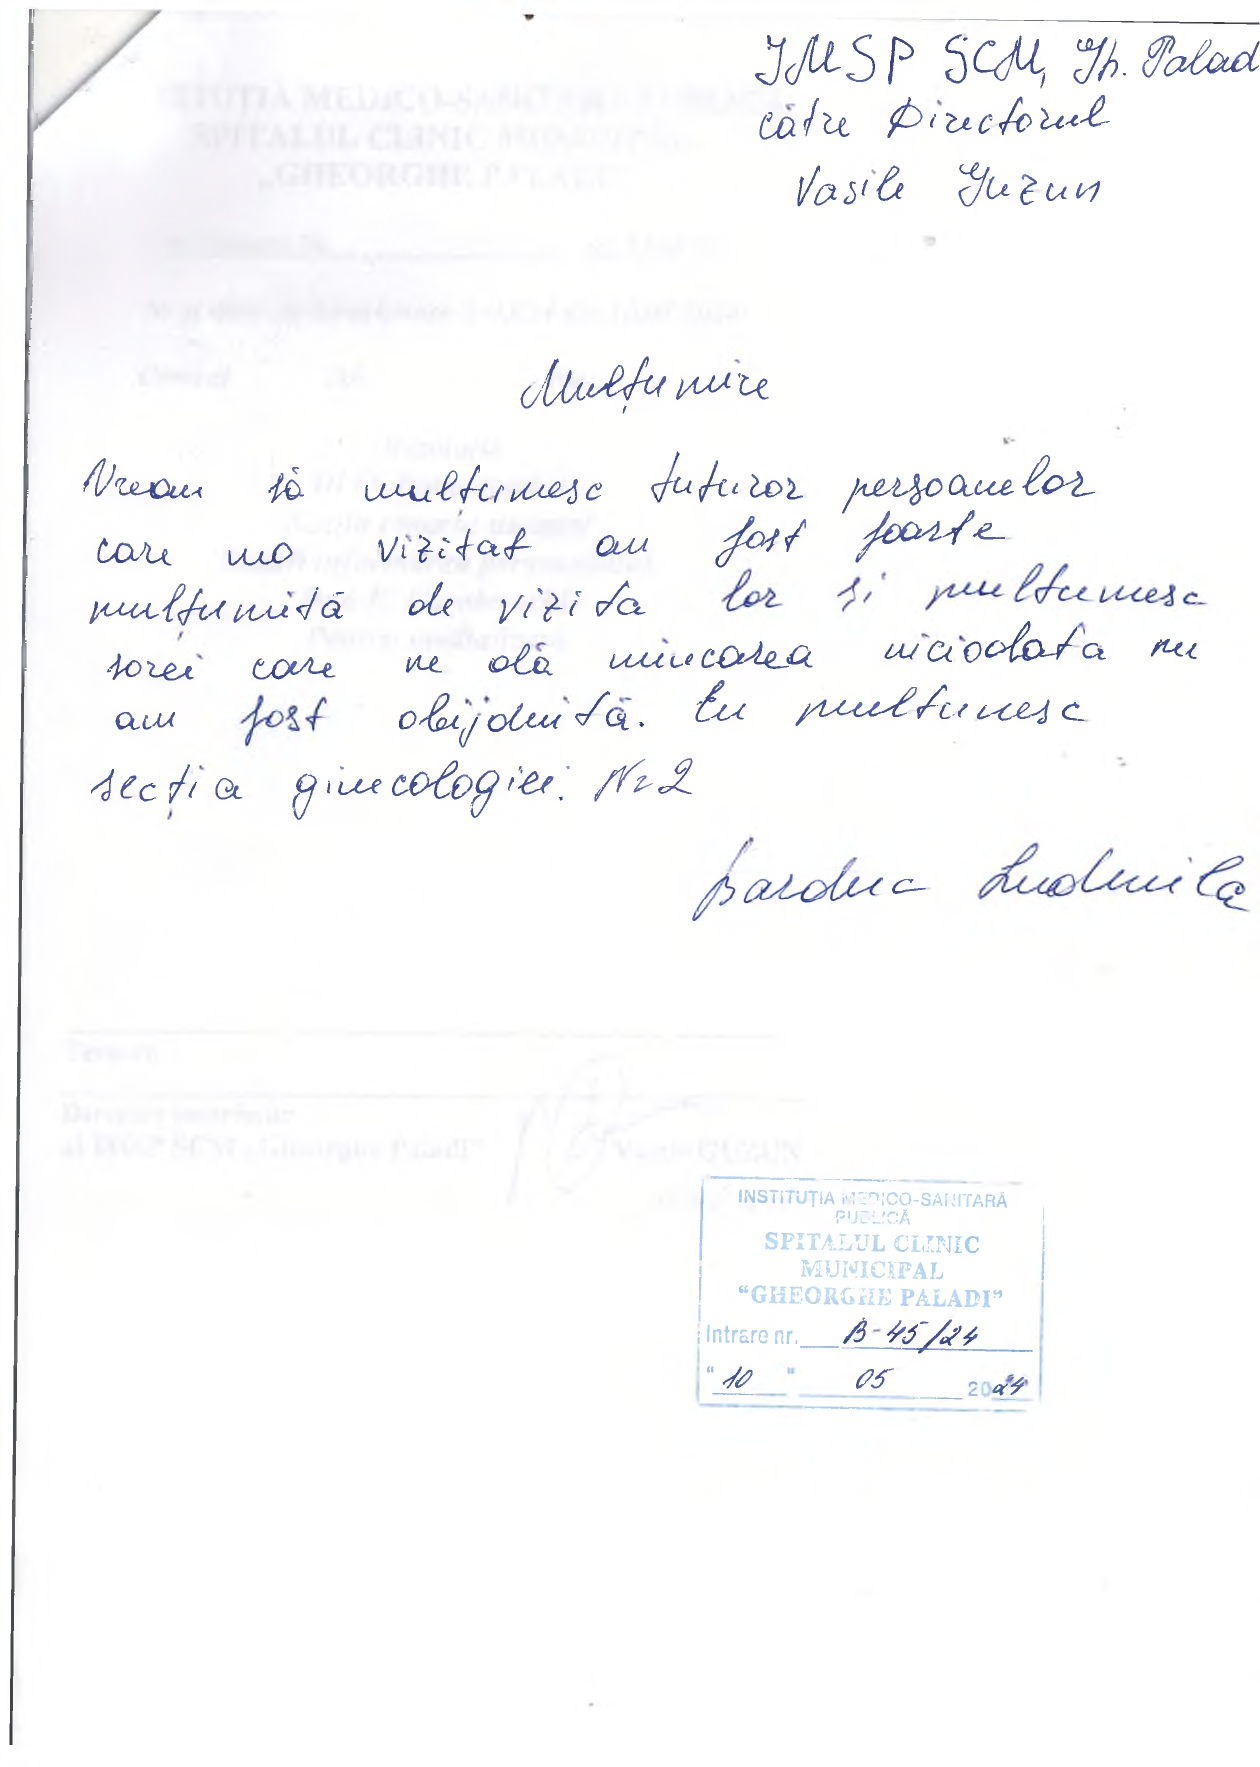 IMSP SCM, Gh. Palad
către Directorul
Vasile Guzun
Mulțumire
Vreau să mulțumesc tuturor persoanelor
care mo vizitat au fost foarte
mulțumită de vizita lor și multumesc
sorei care ne dă mincarea niciodata nu
am fost obijduită. Eu multumesc
secția ginecologiei. Nr 2
Barduc Ludmila
INSTITUȚIA MEDICO-SANITARĂ
PUBLICĂ
SPITALUL CLINIC
MUNICIPAL
"GHEORGHE PALADI"
Intrare nr. B-45/24
"10" 05 2024